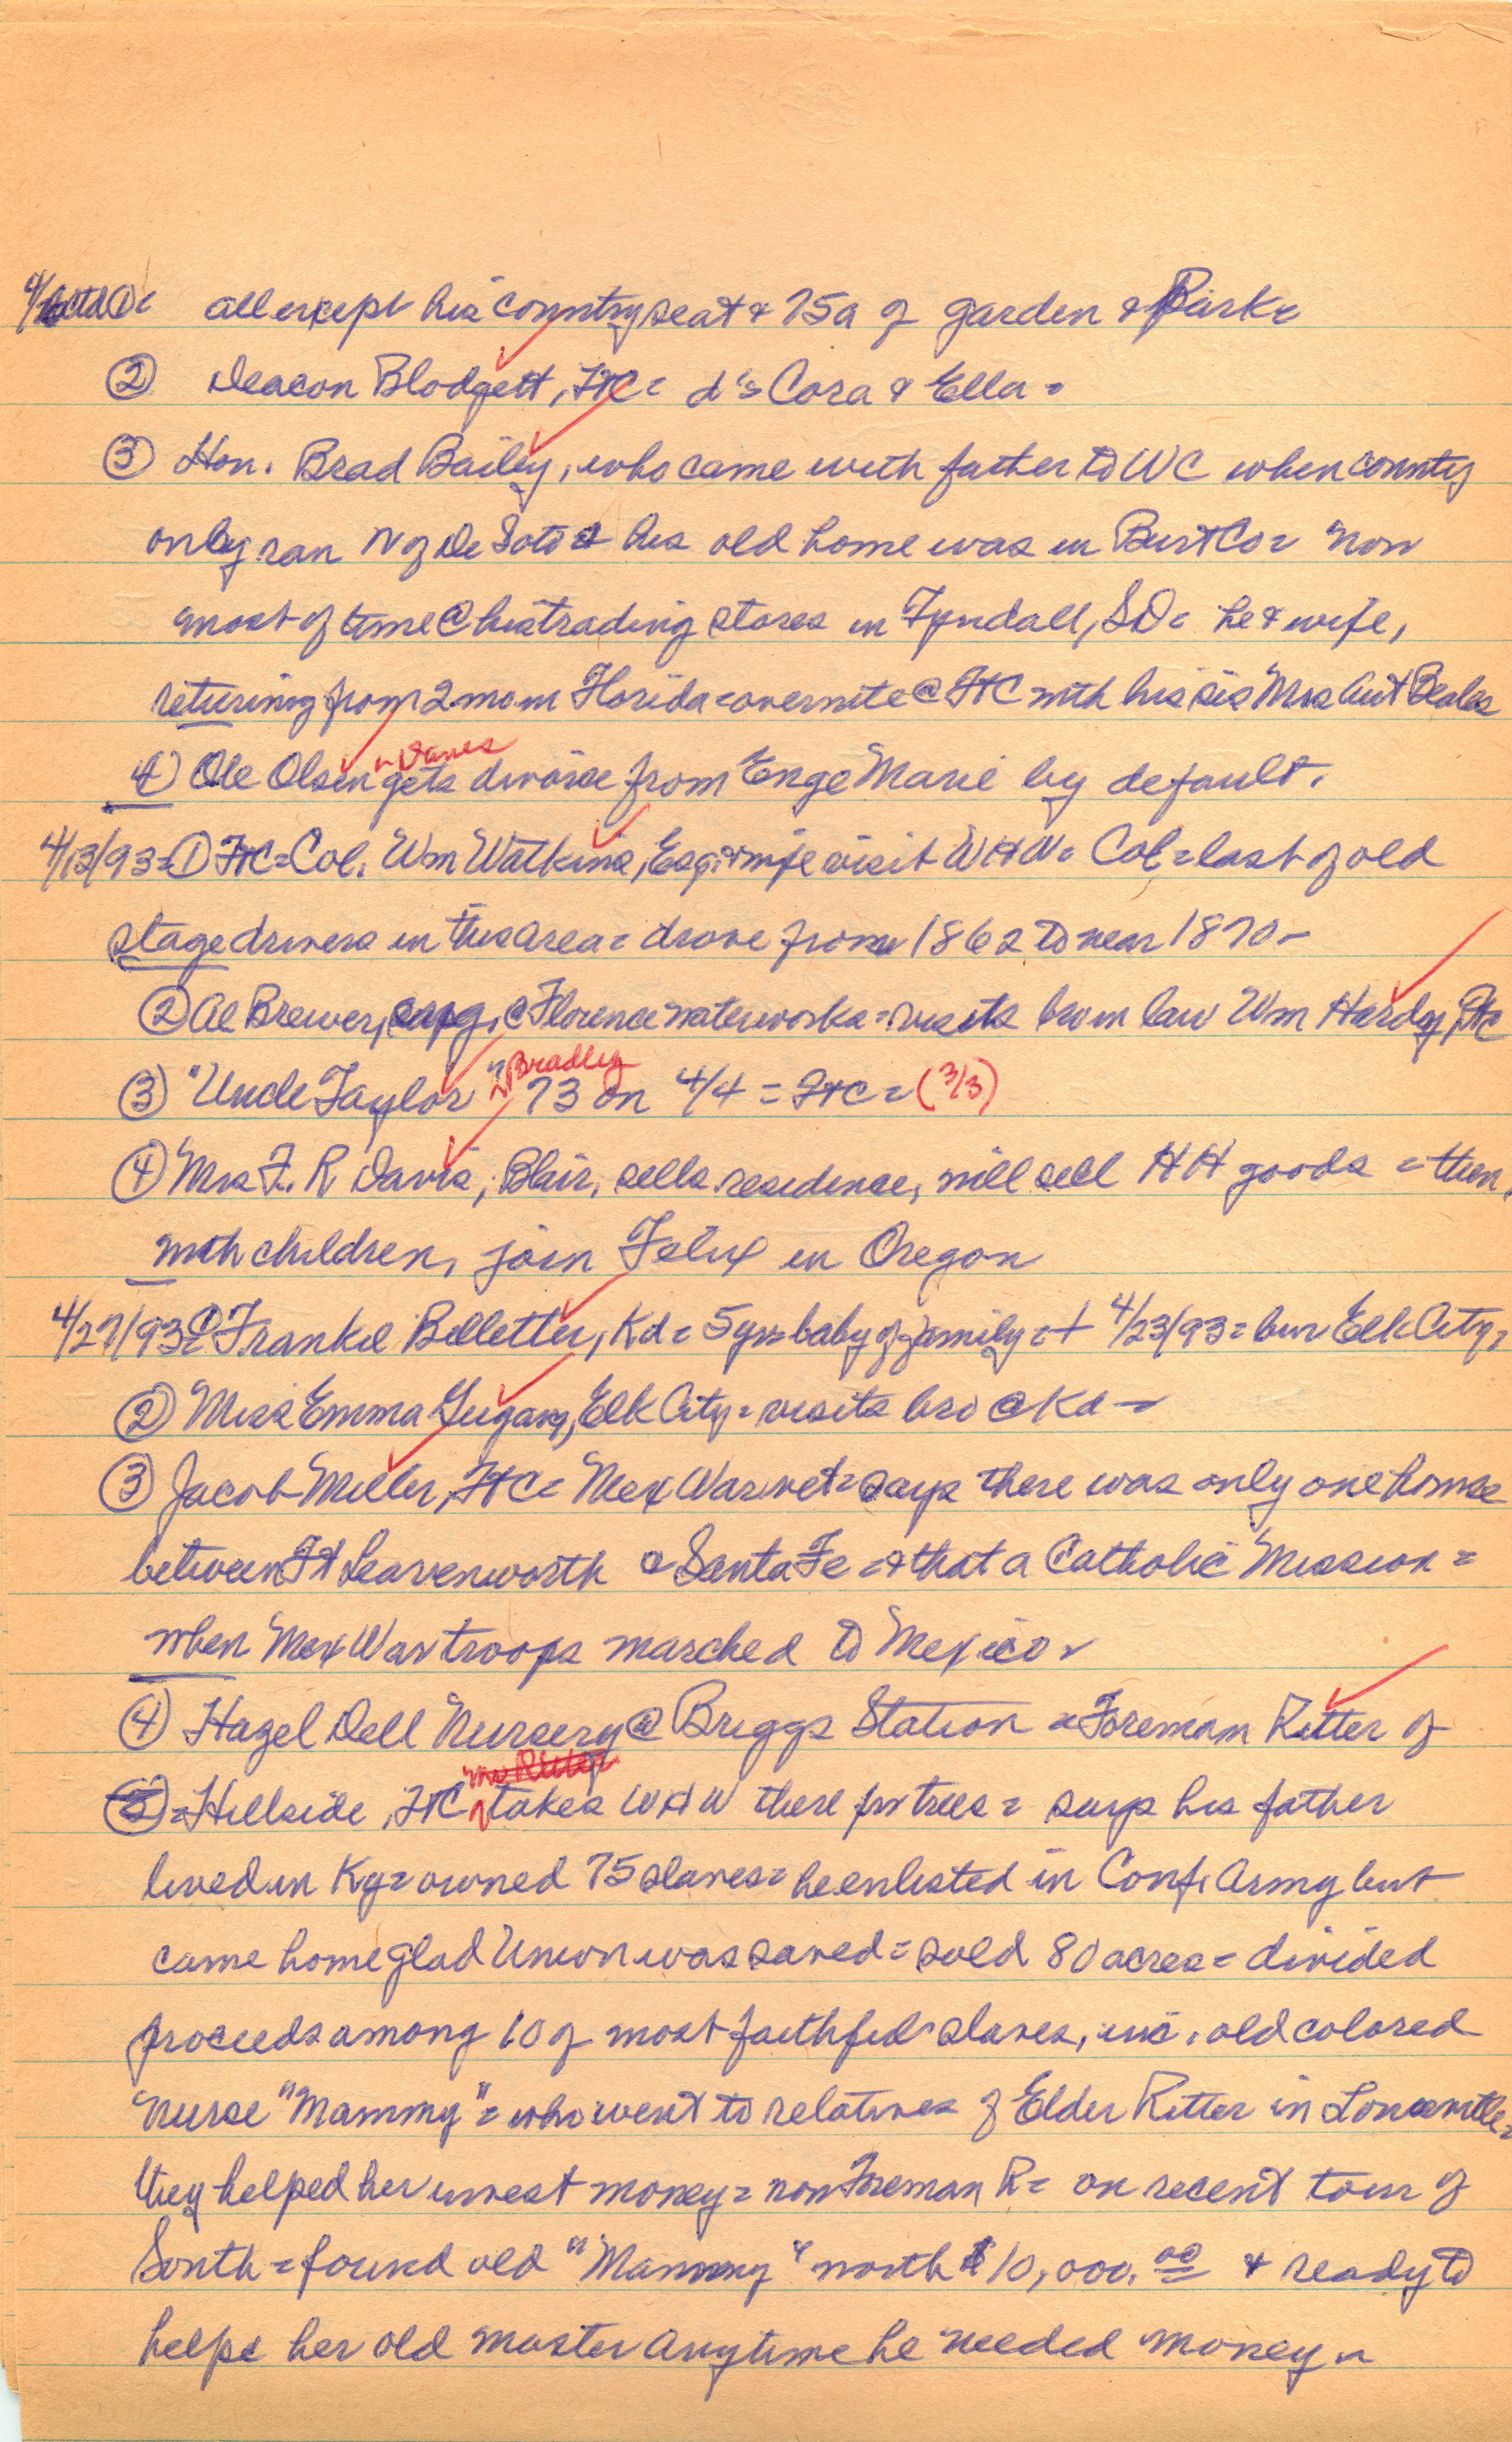 all except his country seat & 75a of garden & Park =
② Deacon Blodgett, FtC = d's Cora & Ella =
③ Hon. Brad Bailey, who came with father to WC when county
only ran N of De Soto & his old home was in Burt Co = now
most of time @ his trading stores in Tyndall, SD = he & wife,
returing from 2 mo in Florida = overnite @ FtC with his sis Mrs Beales
④ Ole Olsen gets divorce from Enge Marie by default.
4/13/93 = ① FtC = Col. Wm Watkins, Esq. & wife visit WHW = Col = last of old
stage drivers in this area = drove from 1862 to near 1870 -
② Al Brewer, @ Florence waterworks = visits bro in law Wm Hardy, FtC
Bradley
③ "Uncle Taylor" 73 on 4/4 = FtC = (3/3)
④ Mrs F. R Davis, Blair, sells residence, will sell HH goods = then,
with children, join Felix in Oregon
4/27/93 = ① Frankie Belletter, Kd = 5 yrs = baby of family = + 4/23/93 = bur Elk City =
② Miss Emma Elk City = visits bro @ Kd =
③ Jacob Miller, FtC = Mex War vet = says there was only one house
between Ft Leavenworth & Santa Fe = & that a Catholic Mission =
when Mex War troops marched to Mexico =
④ Hazel Dell Nursery @ Briggs Station = Foreman Ritter of
Hillside, FtC takes WHW there for trees = says his father
lived in Ky = owned 75 slaves = he enlisted in Conf. Army but
came home glad Union was saved = sold 80 acres = divided
proceeds among 10 of most faithful slaves, inc. old colored
nurse "Mammy" = who went to relatives of Elder Ritter in Louisville =
they helped her invest money = now Foreman R = on recent tour of
South = found old "Mammy" worth $10,000.00 & ready to
help her old master anytime he needed money =